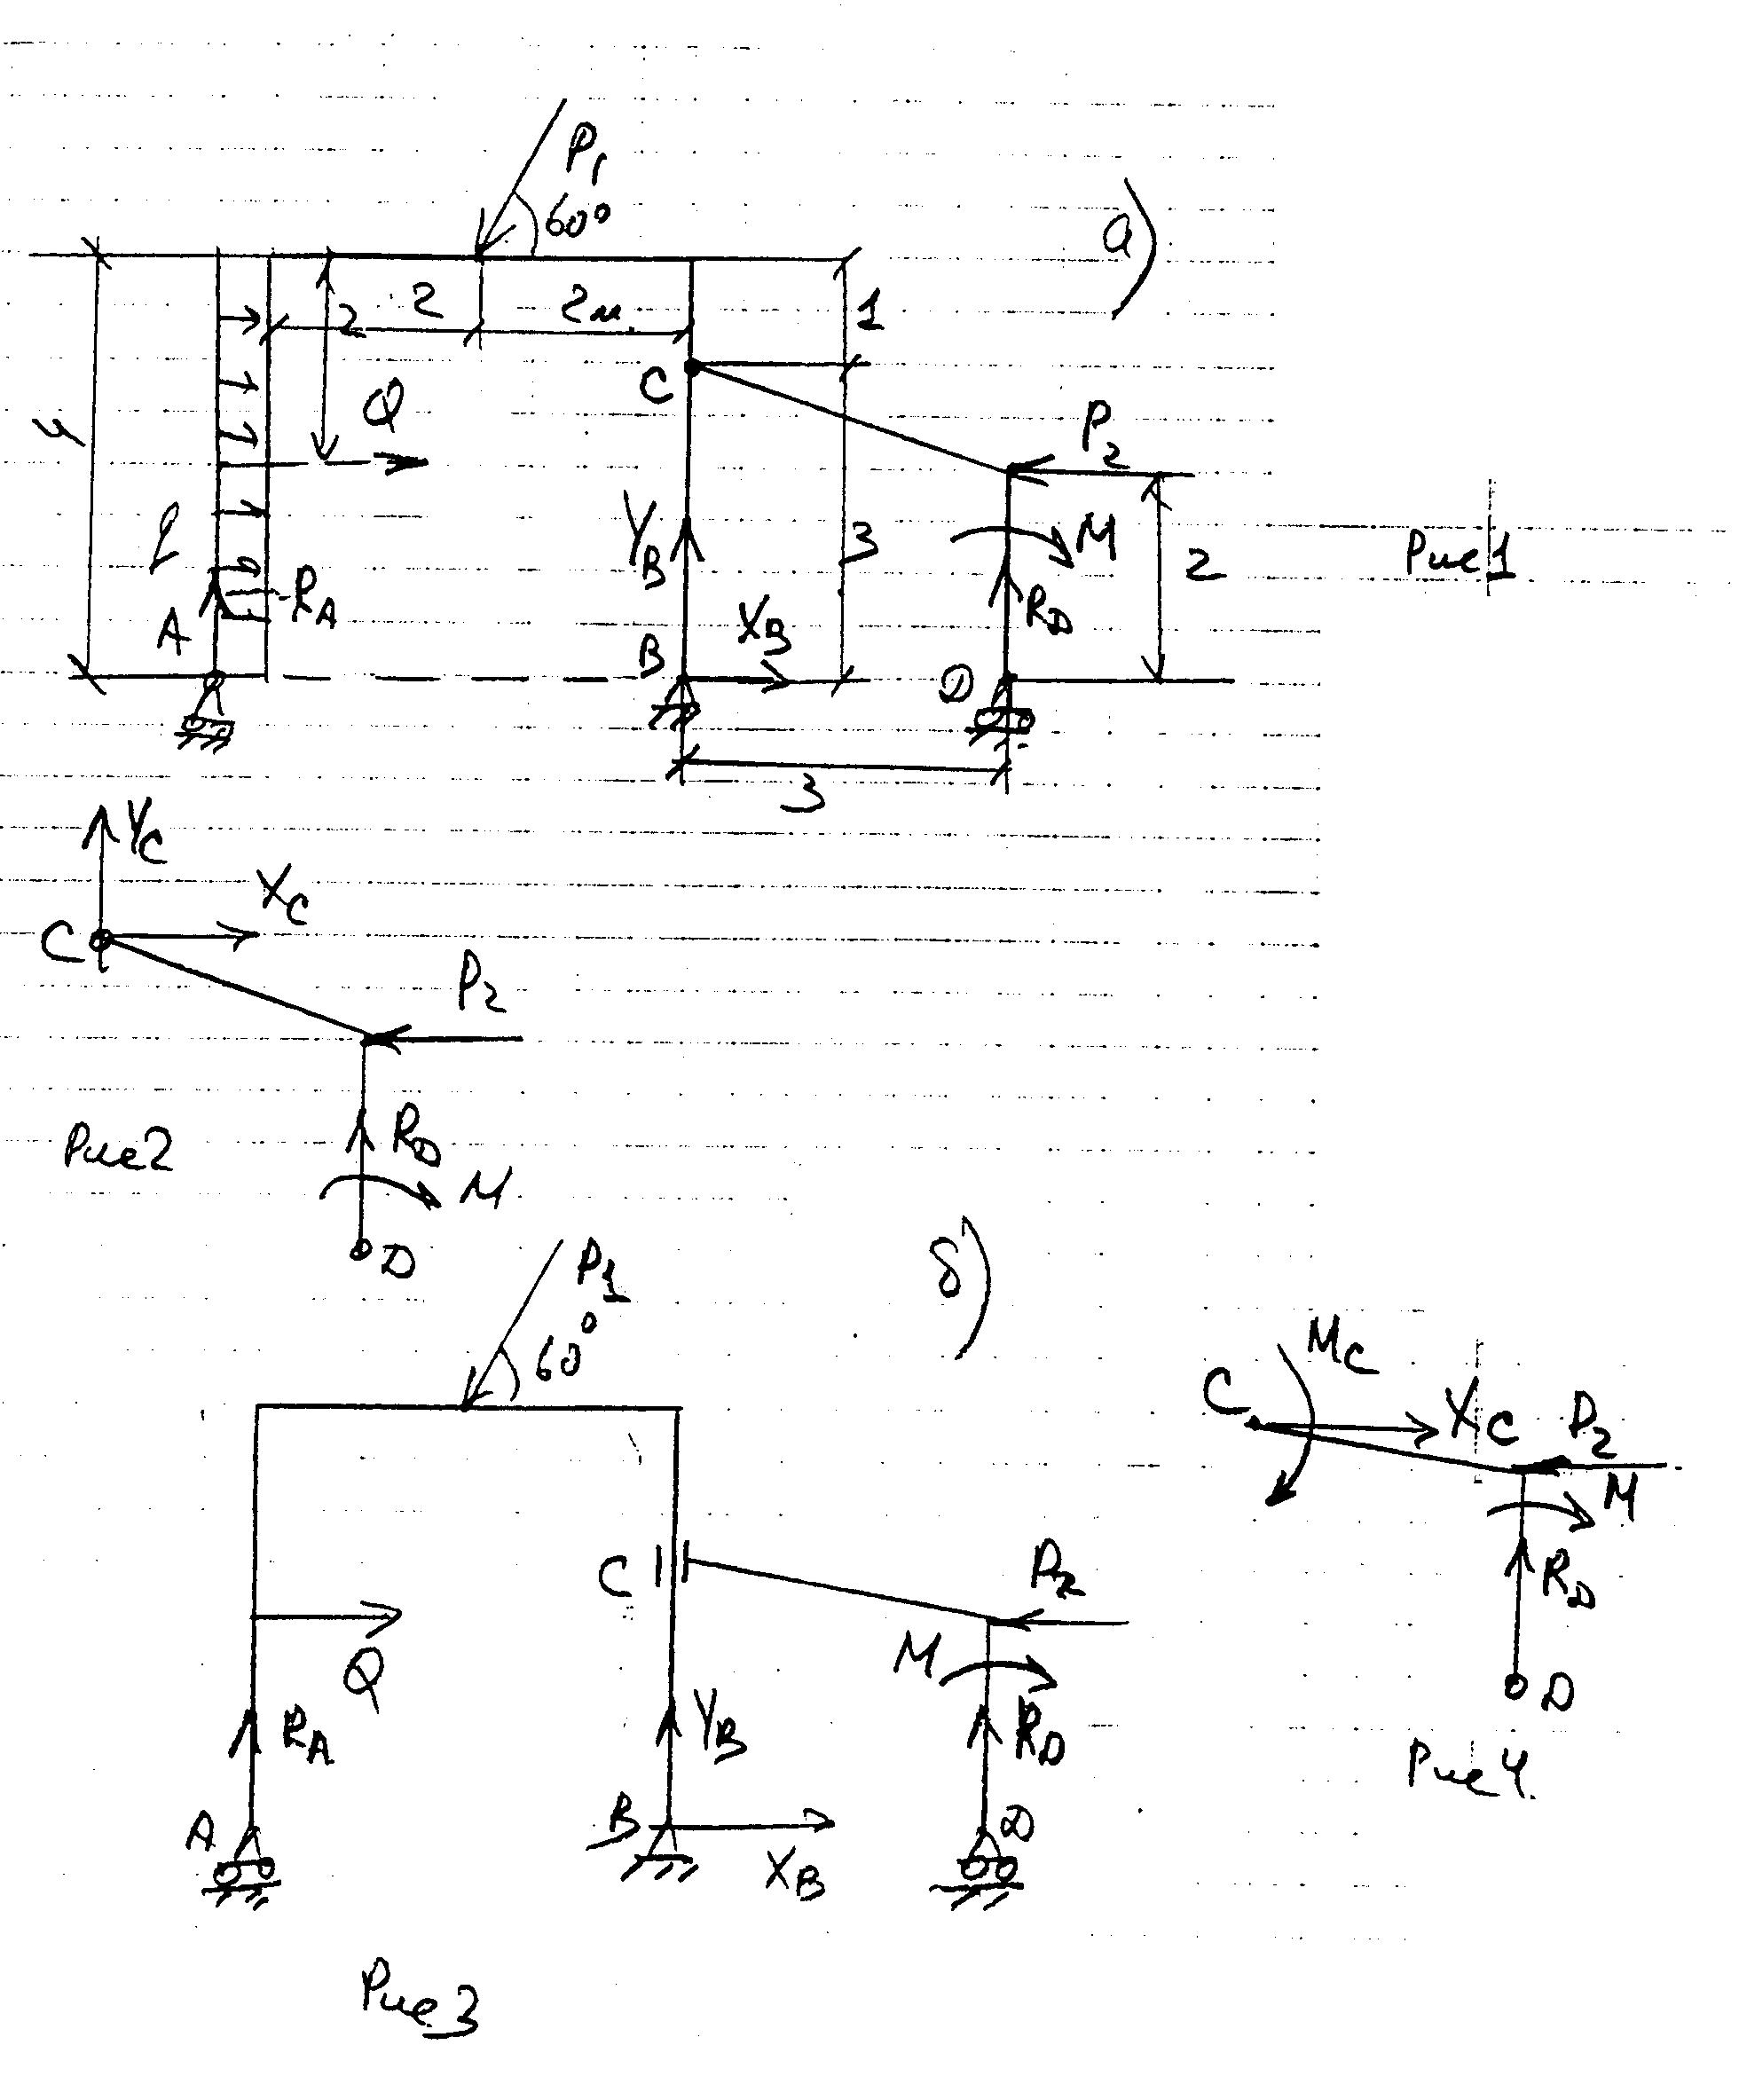 P₁
60°
а)
2
2
2м.
1
C
4
Q
P₂
q
Y_B
3
M
2
Рис 1
R_A
A
X_B
R_D
B
D
3
Y_C
X_C
C
P₂
R_D
Рис2
M
D
P₁
60°
б)
M_C
C
X_C
P₂
M
C
P₂
M
R_D
Q
D
R_A
Y_B
R_D
Рис 4.
A
B
D
X_B
Рис 3